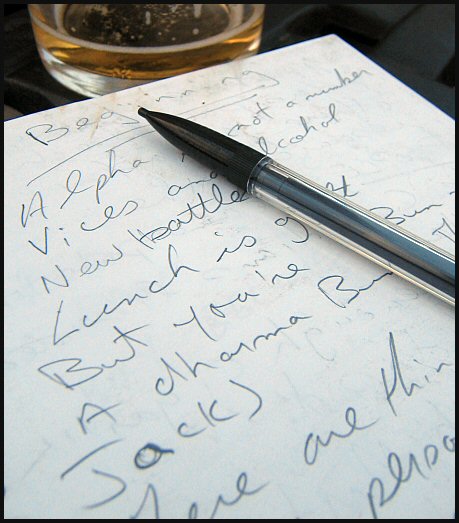 Beginning
Alpha is not a number
Vices and alcohol
New battle
Lunch is
But you're Bun
A dharma Bun
Jack)
are thin